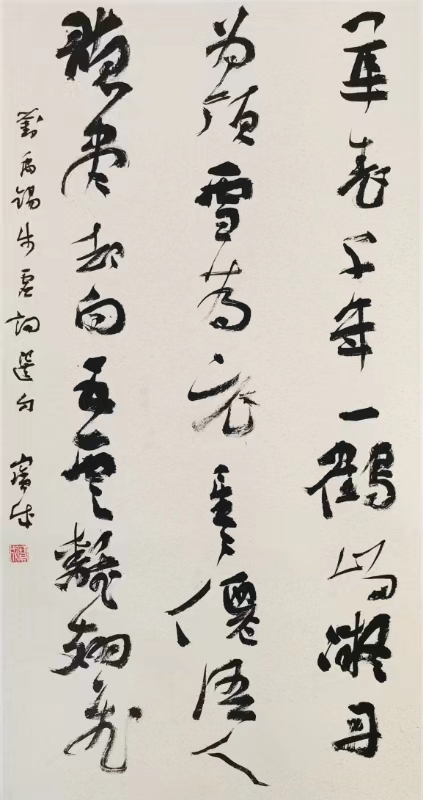 華表千年一鶴歸凝丹
为頂雪為衣星々僊語人
聽盡却向五雲翻翅飛
劉禹錫步虛詞選句